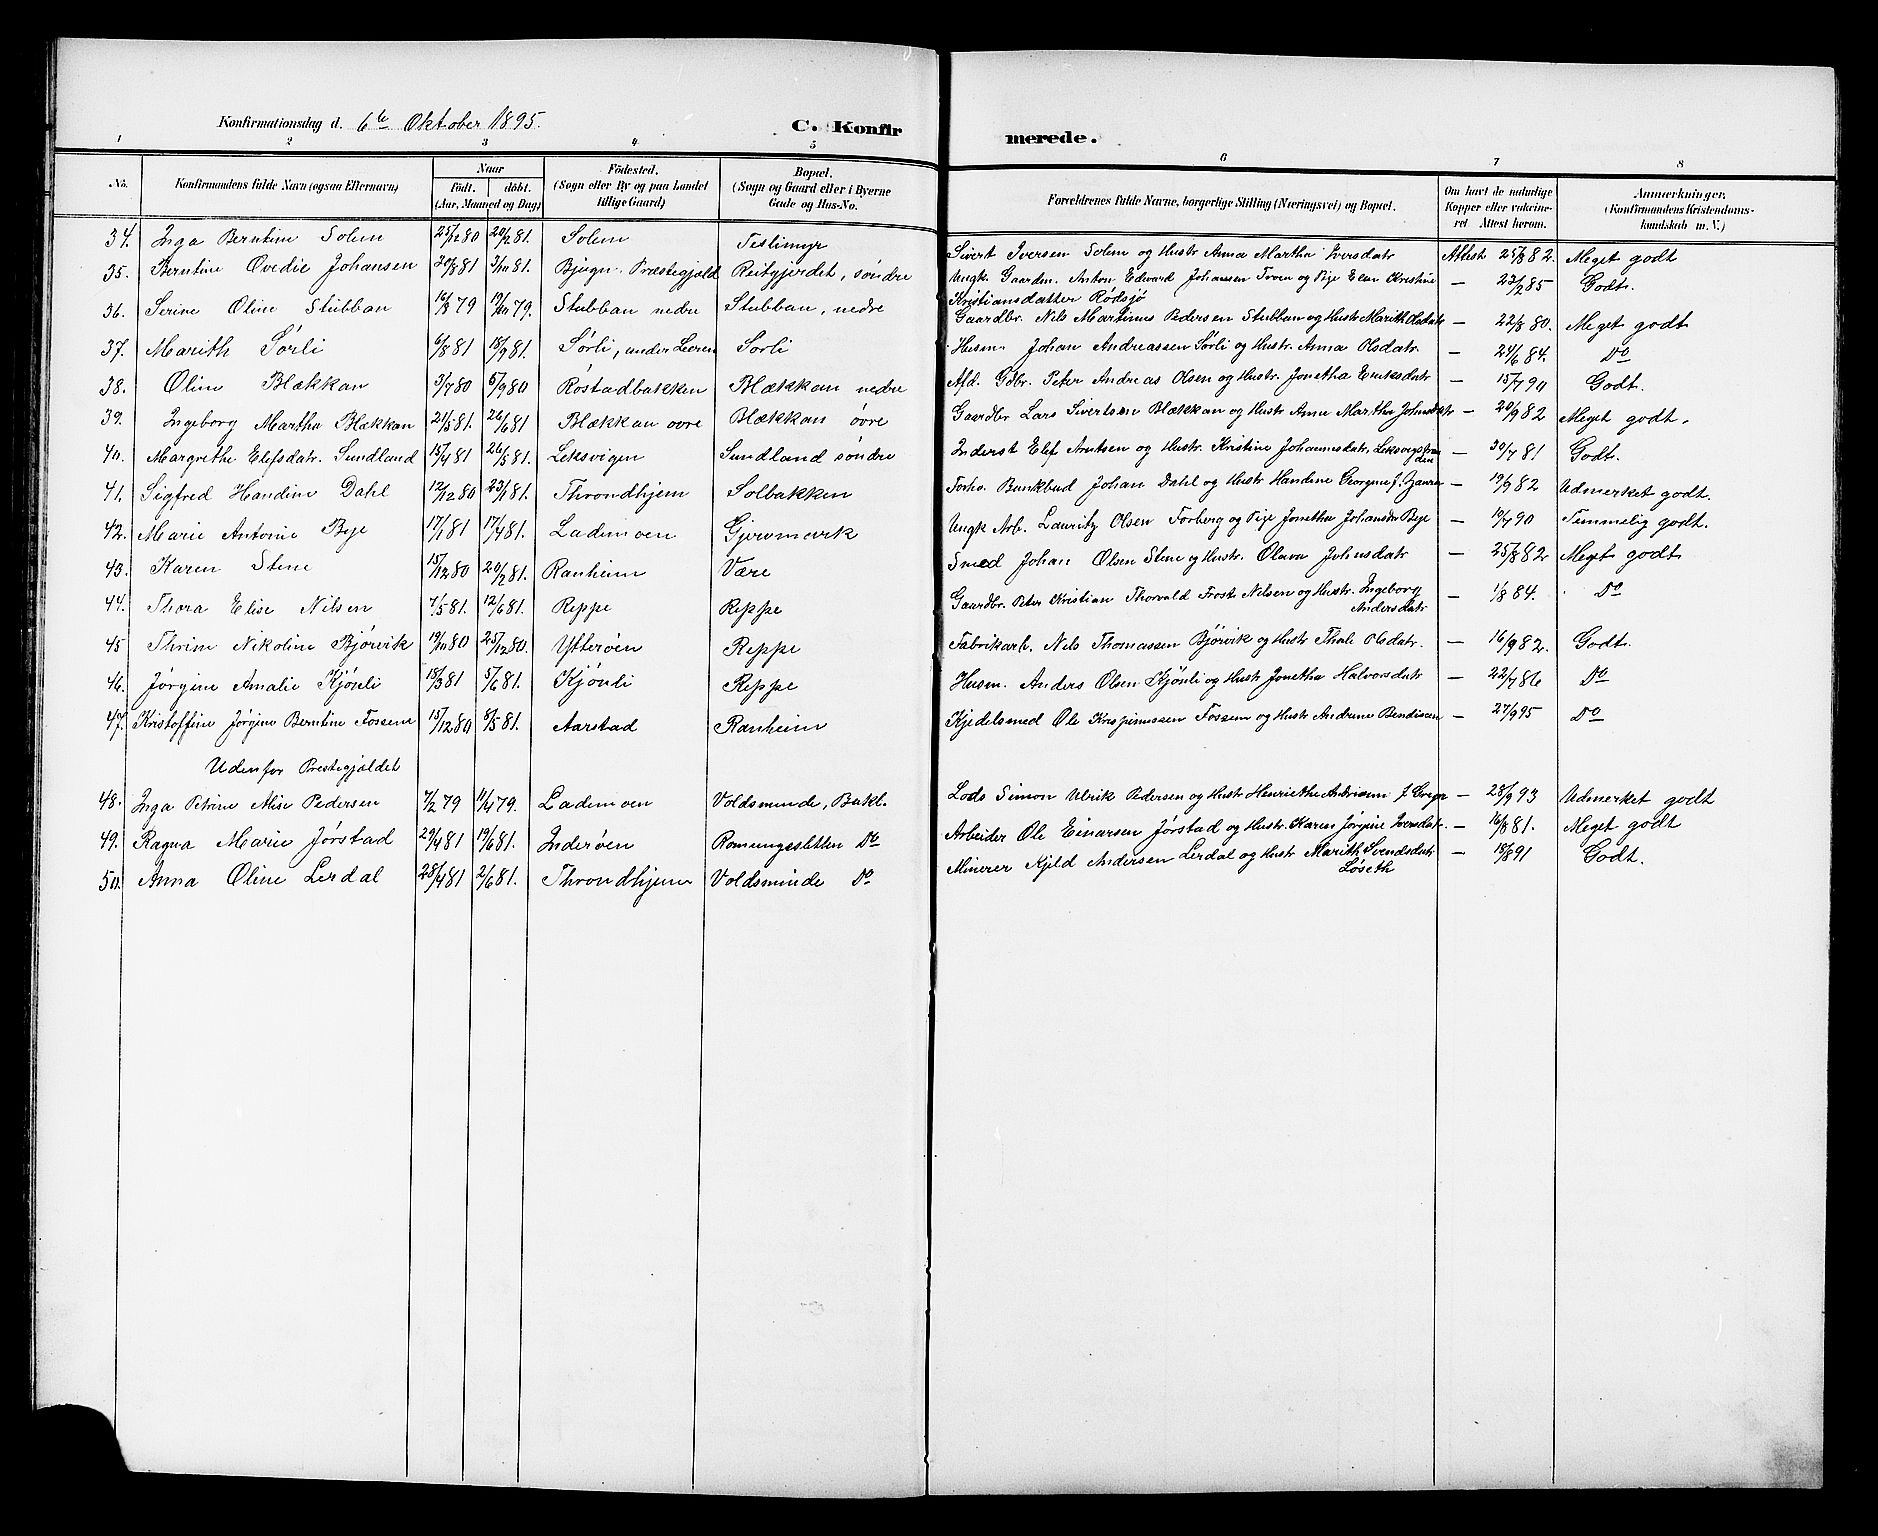 Konfirmationsdag d. 6te Oktober 1895.
C. Konfir merede.
1 2 3 4 5 6 7 8
No. Konfirmandens fulde Navn (ogsaa Efternavn) Naar födt. döbt. (Aar, Maaned og Dag) Födested. (Sogn eller By og paa Landet tillige Gaard) Bopæl. (Sogn og Gaard eller i Byerne Gade og Hus-No. Forældrenes fulde Navne, borgerlige Stilling (Næringsvei) og Bopæl. Om havt de naturlige Kopper eller vakcineret Attest herom. Anmærkninger, (Konfirmandens Kristendomskundskab m. V.)
34. Inga Berntine Solem 25/12 80 20/2 81. Solem Teslimyr Sivert Iversen Solem og Hustr Anna Martha Iversdatr Attest 25/7 82. Meget godt
35. Berntine Ovedie Johansen 20/8 81 3/10 81. Bjugn Præstegjæld Reitgjerdet, søndre Ungk. Gaardm. Anton Edvard Johansen Tven og Pige Elen Kristine Kristiansdatter Rødsjø — 23/2 85 Godt.
36. Serine Oline Stubban 16/8 79 19/10 79. Stubban nedre Stubban, nedre Gaardbr. Nils Martinus Pedersen Stubban og Hustr Marith Olsdatr — 22/8 80. Meget godt
37. Marith Sørli 6/8 81 18/9 81. Sørli, under Leeren Sorli Husm. Johan Andreassen Sørli og Hustr. Anna Olsdatr. — 24/6 84. Do
38. Oline Blækkan 3/7 80 5/9 80 Rostadbakken Blækkan nedre Afd. Gdbr. Peter Andreas Olsen og Hustr. Jonetha Eriksdatr — 15/7 90 Godt.
39. Ingeborg Martha Blækkan 21/5 81. 26/6 81 Blækkan ovre Blækkan øvre Gaardbr Lars Sivertsen Blækkan og Hustr Anne Martha Johnsdtr — 20/9 82 Meget godt.
40. Margrethe Elefsdatr. Sundland 15/4 81 26/5 81. Leksvigen Sundland søndre Inderst Elef Arntsen og Hustr. Kristine Johannsdatr, — 30/7 81 Godt.
41. Sigfred Handine Dahl 12/12 80 23/1 81. Throndhjem Solbakken Forhv. Bankbud Johan Dahl og Hustr Handine Georgine f. — 19/9 82 Udmerket godt.
42. Marie Antonie Bye 17/1 81 17/4 81. Lademoen Gjervmarvik Ungk Arb. Lauritz Olsen Forberg og Pige Jonetha Johansdr Bye — 19/7 90 Temmelig godt.
43. Karen Stene 15/12 80 20/2 81. Ranheim Være Smed Johan Olsen Stene og Hustr. Olava Johnsdatr — 25/8 82 Meget godt
44. Thora Elise Nilsen 7/5 81. 12/6 81 Reppe Reppe Gaardbr. Peter Kristian Thorvald Frost Nilsen og Hustr. Ingeborg Andersdatr — 1/8 84. Do
45 Thrine Nikoline Bjørvik 19/10 80 25/12 80. Ytterøen Reppe Fabriksarb. Nils Thomassen Bjørvik og Hustr Thale Olsdatr. — 16/9 82. Godt.
46. Jørgine Amalie Kjönli 18/3 81 5/6 81. Kjönli Reppe Husm. Anders Olsen Kjönli og Hustr Jonetha Halvorsdatr — 22/7 86 Do
47. Kristoffine Jørgine Berntine Fossem 15/12 80 8/5 81. Aarstad Ranheim Kjedelsmed Ole Krispinussen Fossem og Hustr Andrine Bendixen — 27/9 95 Do
Udenfor Prestegjældet
48. Inga Petrine Alise Pedersen 7/2 79 11/4 79. Lademoen Voldsminde, Bakl. Lods Simon Ulrik Pedersen og Hustr Henriethe f. — 28/9 93 Udmerket godt
49. Ragna Marie Jørstad 29/4 81 19/6 81. Inderøen Romungssletten Do Arbeider Ole Einarsen Jørstad og Hustr. Karen Jørgine Iversdatr. — 16/8 81. Meget godt
50. Anna Oline Lerdal 28/4 81 2/6 81. Throndhjem Voldsminde Do Minerer Kjeld Andersen Lerdal og Hustr Marith Svendsdatr Løseth — 18/8 91 Godt.